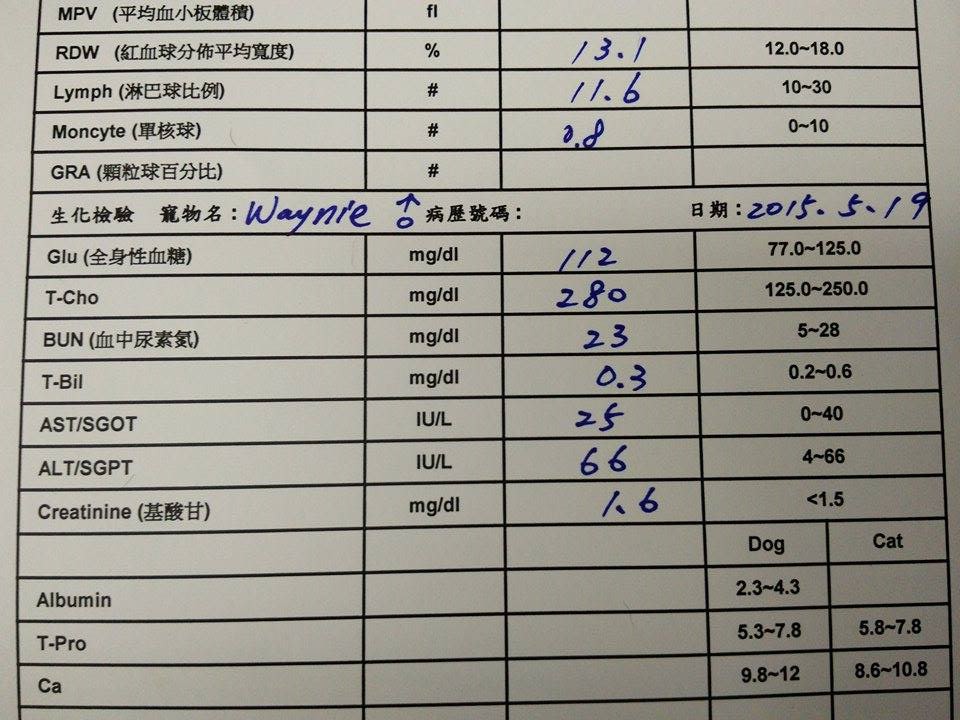 MPV (平均血小板體積) fl
RDW (紅血球分佈平均寬度) % 13.1 12.0~18.0
Lymph (淋巴球比例) # 11.6 10~30
Moncyte (單核球) # 0.8 0~10
GRA (顆粒球百分比) #
生化檢驗 寵物名：Waynie ♂ 病歷號碼： 日期：2015.5.19
Glu (全身性血糖) mg/dl 112 77.0~125.0
T-Cho mg/dl 280 125.0~250.0
BUN (血中尿素氮) mg/dl 23 5~28
T-Bil mg/dl 0.3 0.2~0.6
AST/SGOT IU/L 25 0~40
ALT/SGPT IU/L 66 4~66
Creatinine (基酸甘) mg/dl 1.6 <1.5
Dog Cat
Albumin 2.3~4.3
T-Pro 5.3~7.8 5.8~7.8
Ca 9.8~12 8.6~10.8